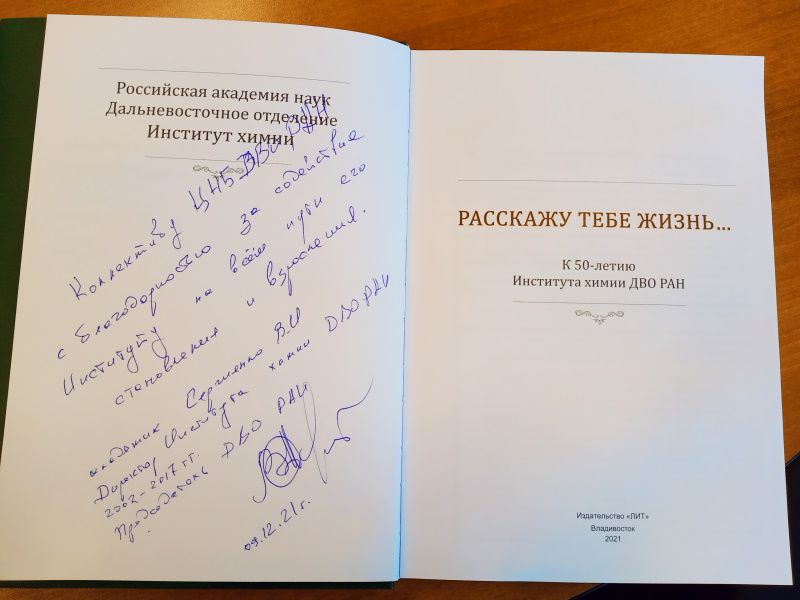 Российская академия наук
Дальневосточное отделение
Институт химии
Коллективу ЦНБ ДВО РАН
с благодарностью за содействие
Институту на всём пути его
становления и взросления.
академик Сергиенко В.И
Директор Института химии ДВО РАН
2002-2017 гг.
Председатель ДВО РАН
09.12.21г.
РАССКАЖУ ТЕБЕ ЖИЗНЬ...
К 50-летию
Института химии ДВО РАН
Издательство «ЛИТ»
Владивосток
2021